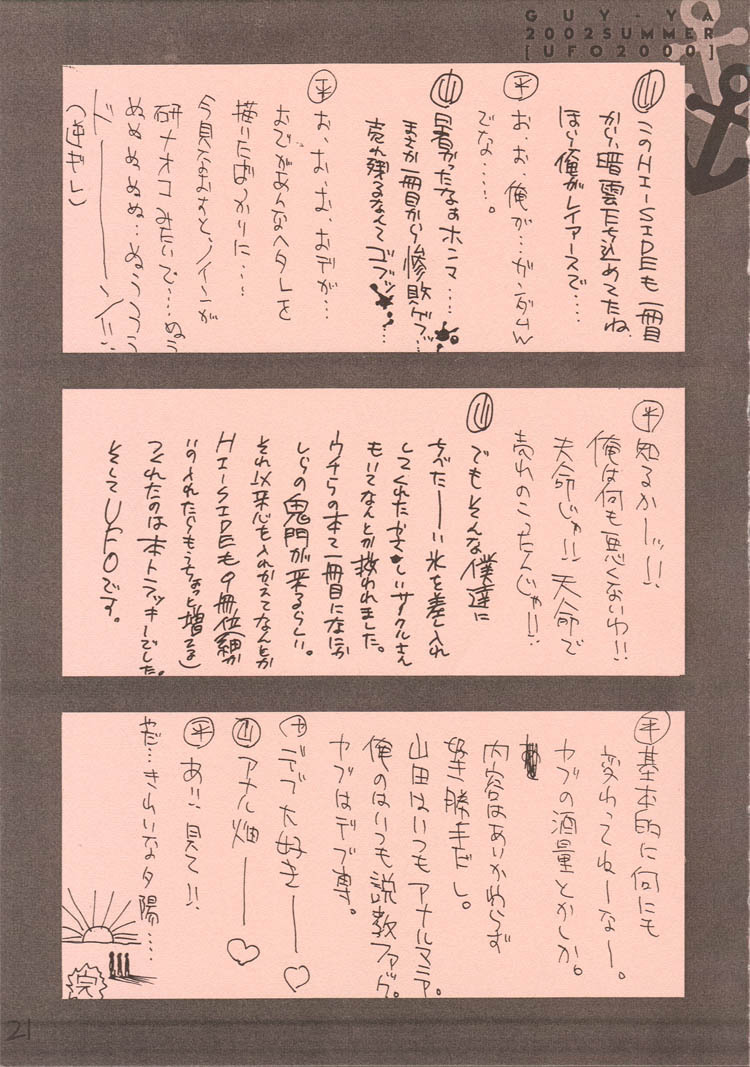 GUY-YA
2002SUMMER
[UFO2000]
山 このHI-SIDEも一冊目
から暗雲たち込めてたね
ほら俺がレイアースで……
平 お、お、俺が…ガンダムW
でな……。
山 暑かったなぁホンマ……
まさか一冊目から惨敗ゲフッ…
売れ残るなんてゴブッ…
平 お、お、お、おデが…
おでがあんなヘタレを
描いたばっかりに…
今見なおすと、ノインが
研ナオコみたいで…ぬう
ぬぬぬぬぬ…ぬうううう
ド――――ン!!
平 知るかーッ!!
俺は何も悪くないわ!!
天命じゃ!!天命で
売れのこったんじゃ!!
山 でもそんな僕達に
ちべたーい氷を差し入れ
してくれたやさしいサークルさん
もいてなんとか救われました。
ウチらの本て一冊目になにか
しらの鬼門が来るらしい。
それ以来心を入れかえてなんとか
HI-SIDEも9冊位(細か
いの入れたらもうちょっと増てる)
つくれたのは本トラッキーでした。
そしてUFOです。
平 基本的に何にも
変わってねーなー。
ヤブの酒量とかしか。
内容はあいかわらず
好き勝手だし。
山田はいつもアナルマニア。
俺のはいつも説教ファック。
ヤブはデブ専。
ヤ デブ大好き――♡
山 アナル畑――♡
平 あ!!見て!!
やだ…きれいな夕陽……
完
21